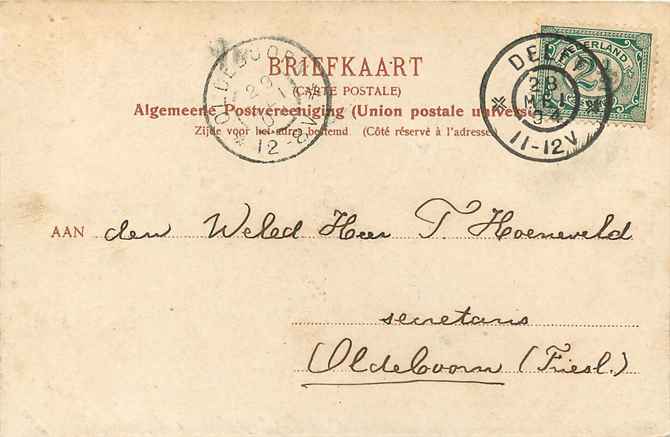 BRIEFKAART
(CARTE POSTALE)
Algemeene Postvereeniging (Union postale universe
Zijde voor het adres bestemd (Côté réservé à l'adresse)
NEDERLAND
DELFT
28
MEI
04
11-12V
29
12-8V
AAN den Weled Heer T. Hoeneveld
secretaris
Oldeboorn (Friesl.)